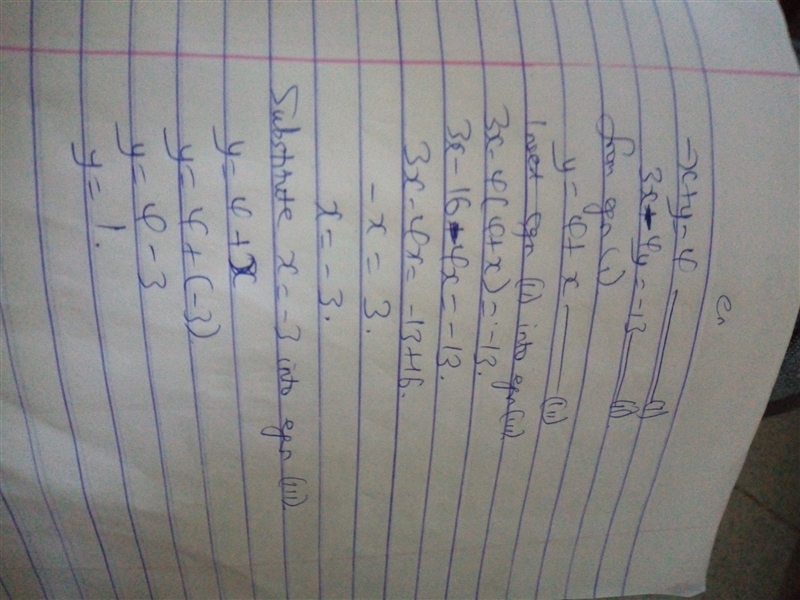 -x+y=4 —— (i)
3x-4y=-13 —— (ii)
from eqn (i)
y = 4+x —— (iii)
Insert eqn (iii) into eqn (ii)
3x-4(4+x)=-13.
3x-16-4x=-13.
3x-4x=-13+16.
-x=3.
x=-3.
Substitute x=-3 into eqn (iii)
y=4+x
y=4+(-3).
y=4-3
y=1.